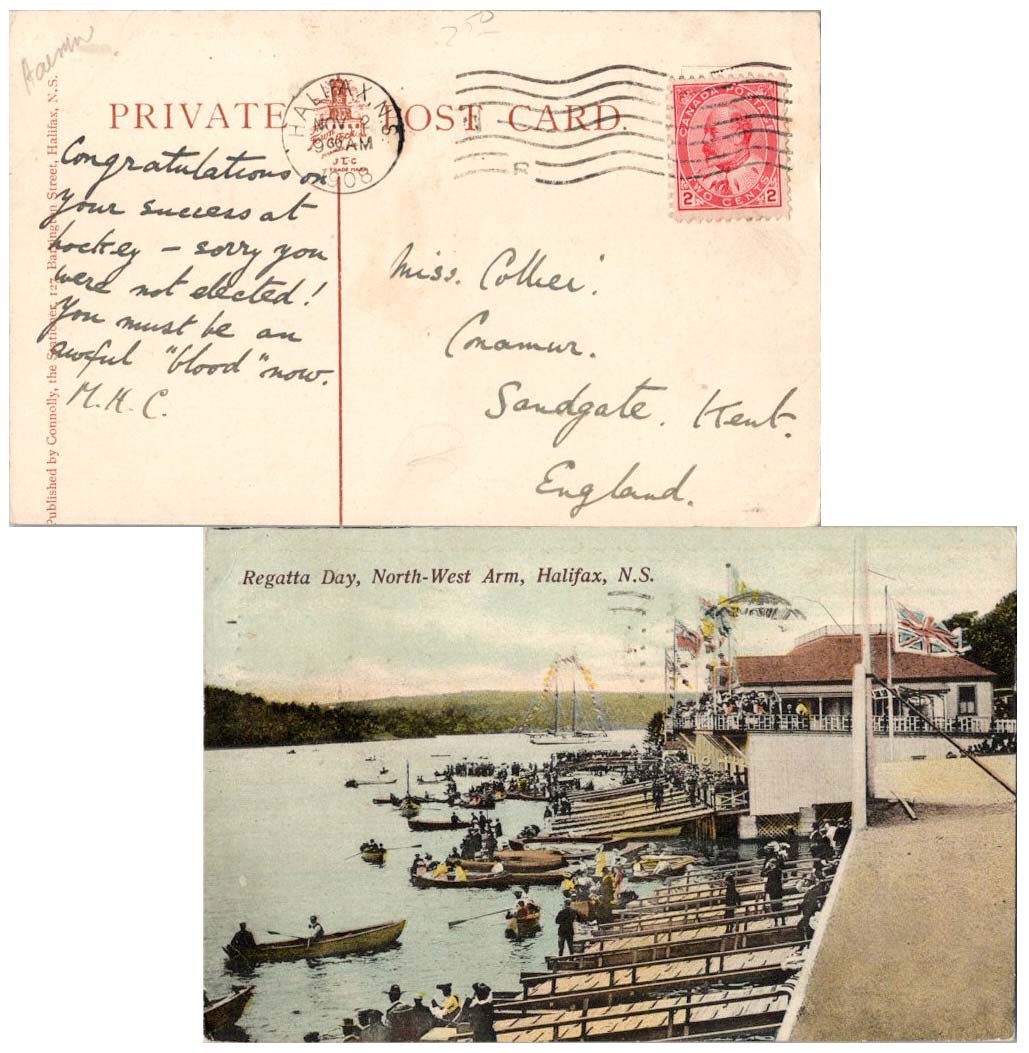 2.50
PRIVATE POST CARD.
HALIFAX, N.S.
NOV 2
9 30 AM
1908
J T C
TRADE MARK
R
CANADA POSTAGE
TWO CENTS
2 2
Congratulations on
your success at
hockey – sorry you
were not elected!
You must be an
awful "blood" now.
M. H. C.
Miss. Collier.
Conamur.
Sandgate. Kent.
England.
Published by Connolly, the Stationer, 127, Barrington Street, Halifax, N.S.
Regatta Day, North-West Arm, Halifax, N.S.